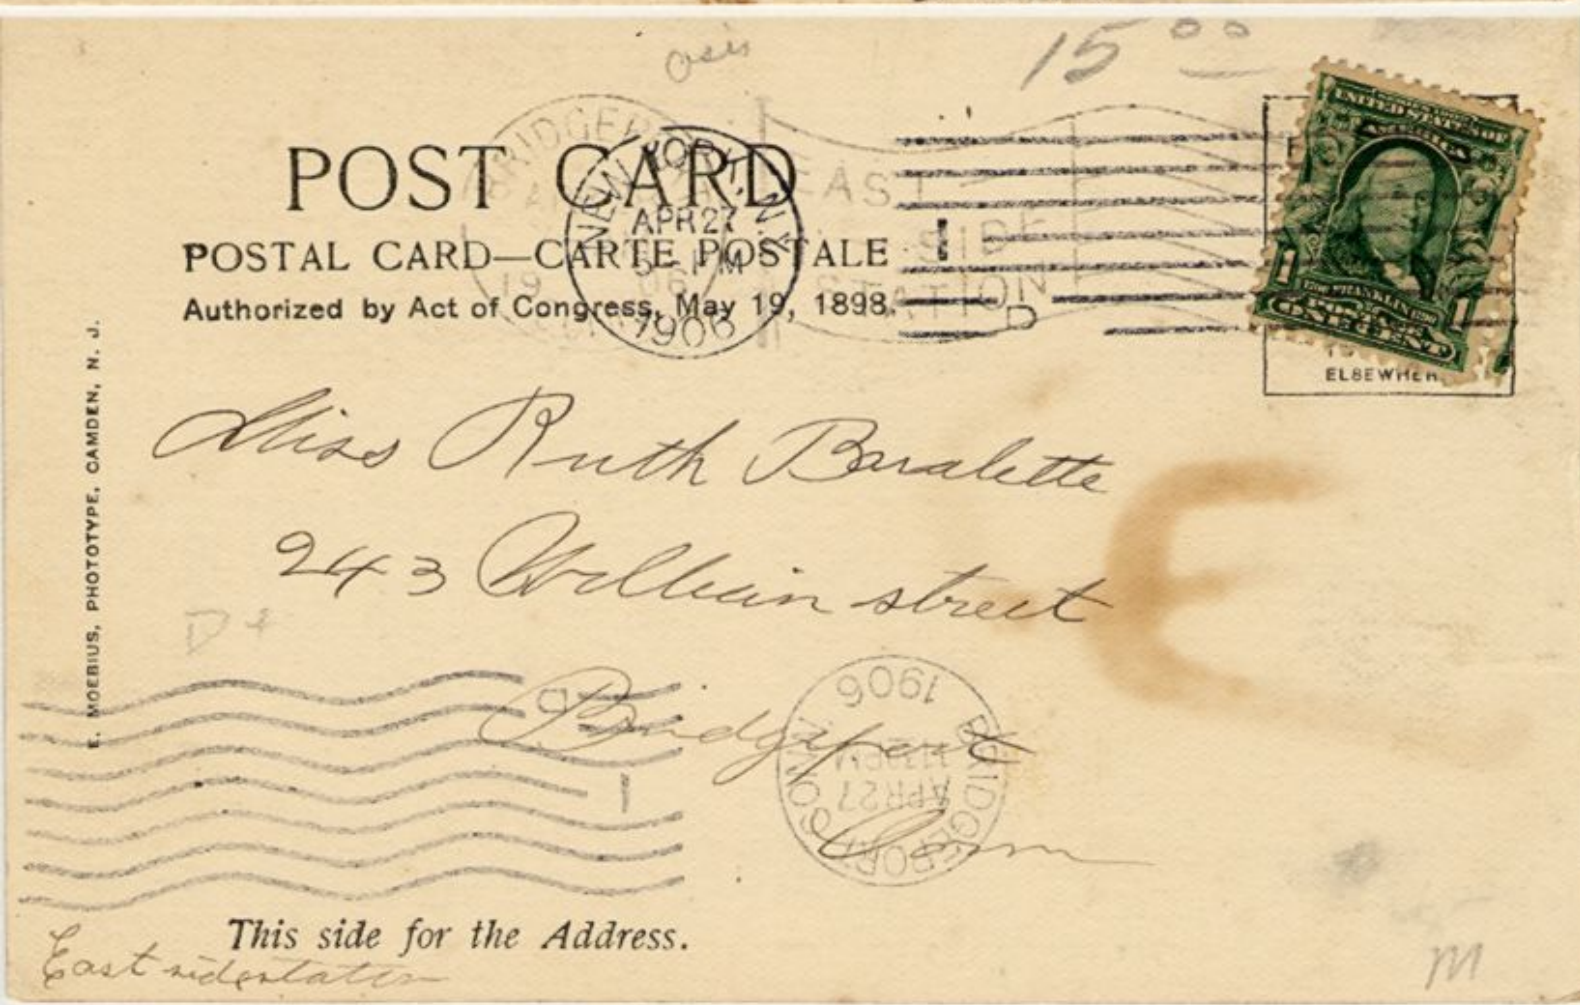 as is
15 00
POST CARD
POSTAL CARD—CARTE POSTALE
Authorized by Act of Congress, May 19, 1898.
NEW YORK, N.Y.
APR 27
1906
BRIDGEPORT
EAST
SIDE
STATION
D
UNITED STATES OF
AMERICA
1 FRANKLIN 1
ONE CENT
ELSEWHER
E. MOEBIUS, PHOTOTYPE, CAMDEN, N. J.
Miss Ruth Baralette
243 William street
D+
Bridgeport
Conn
1
BRIDGEPORT CONN
APR 27
1906
This side for the Address.
East side station
M